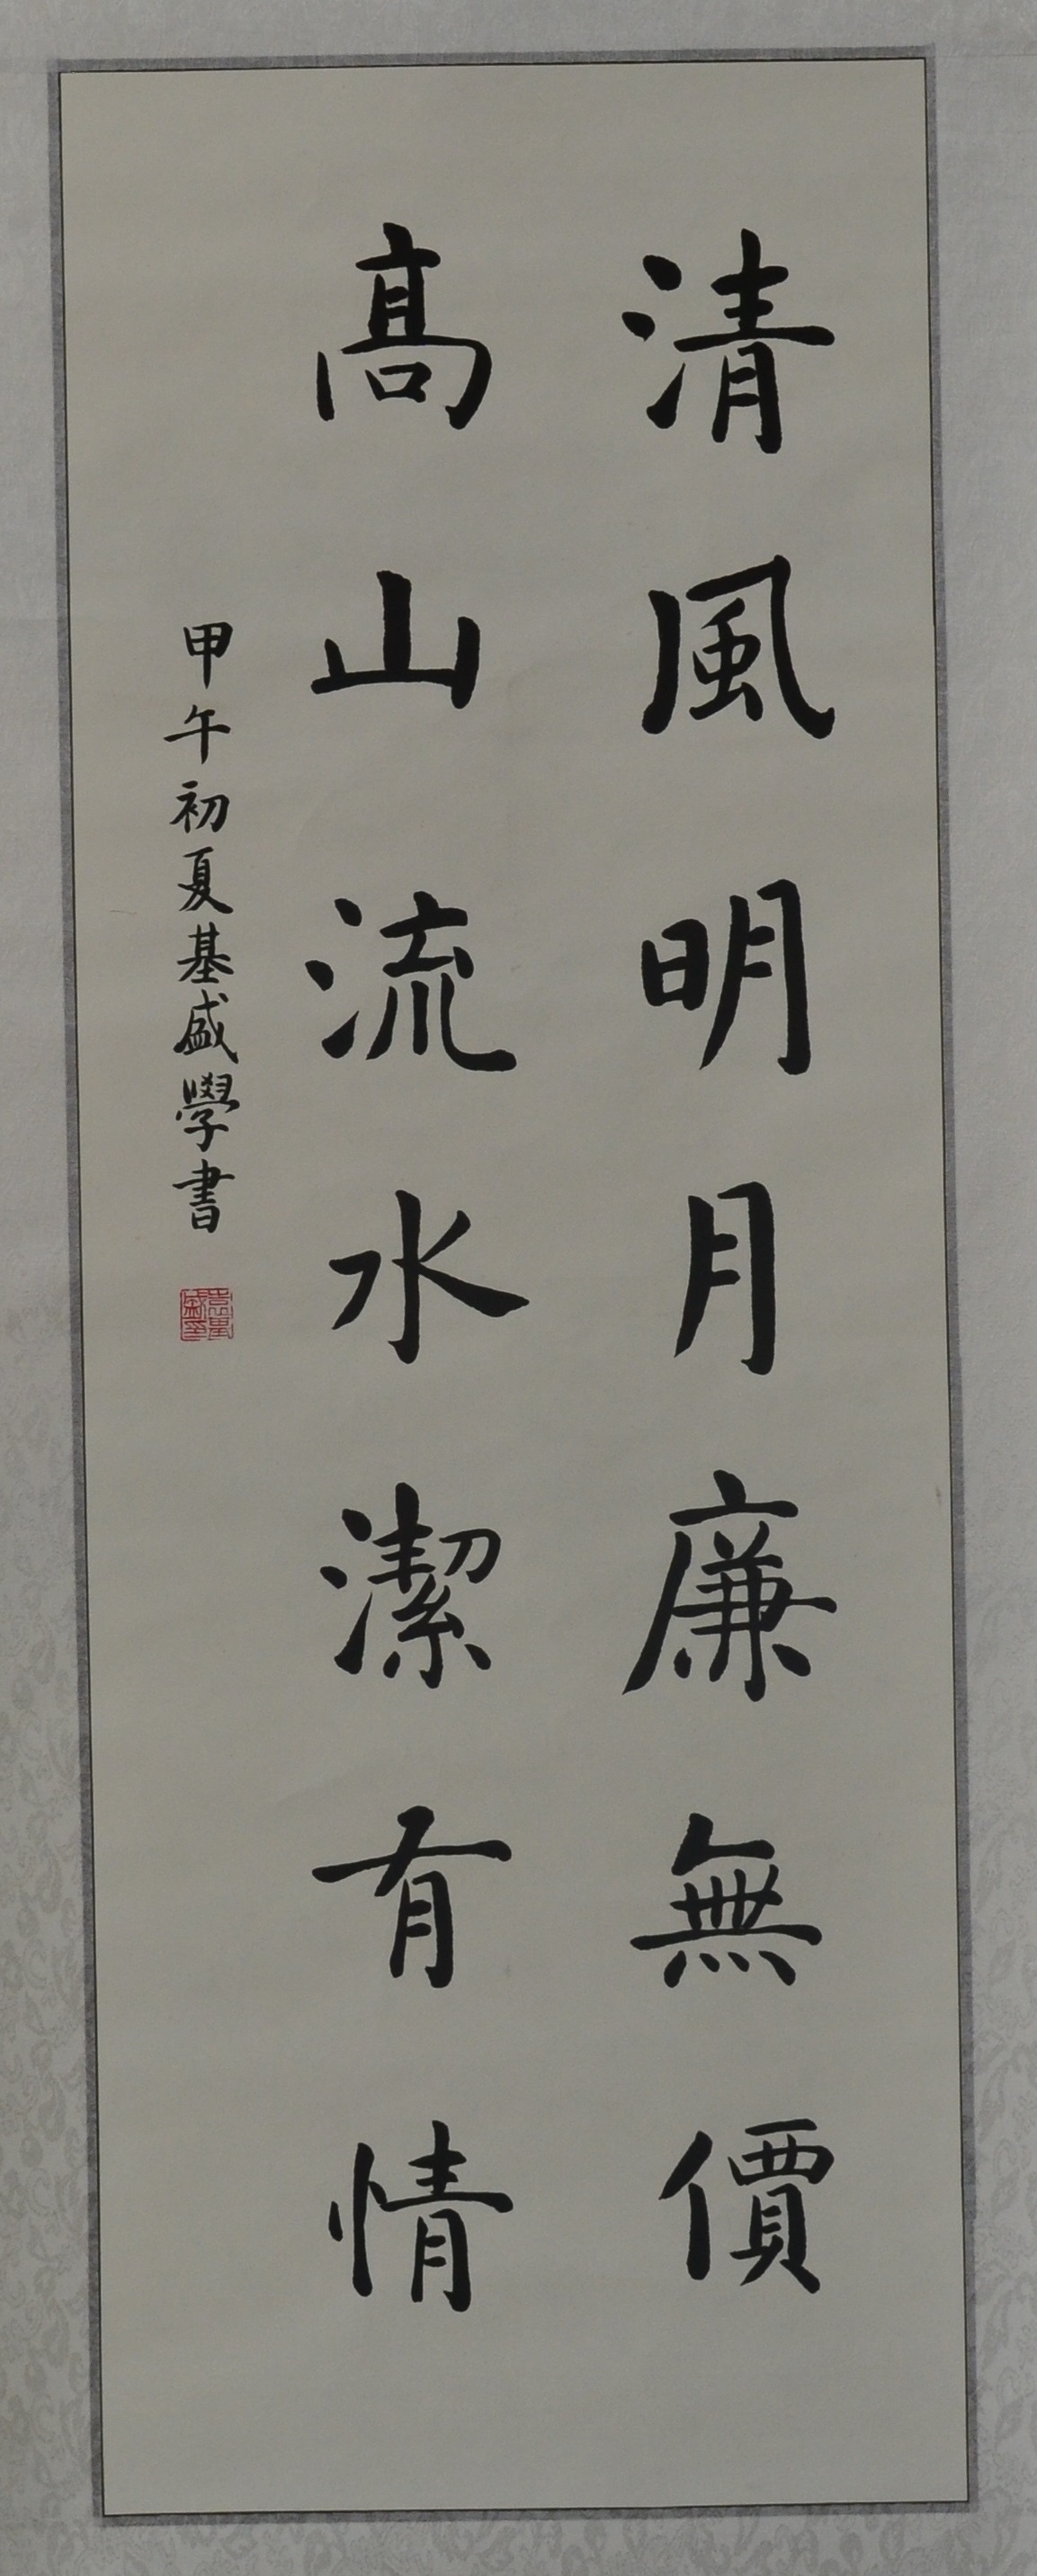 清風明月廉無價
高山流水潔有情
甲午初夏基盛學書